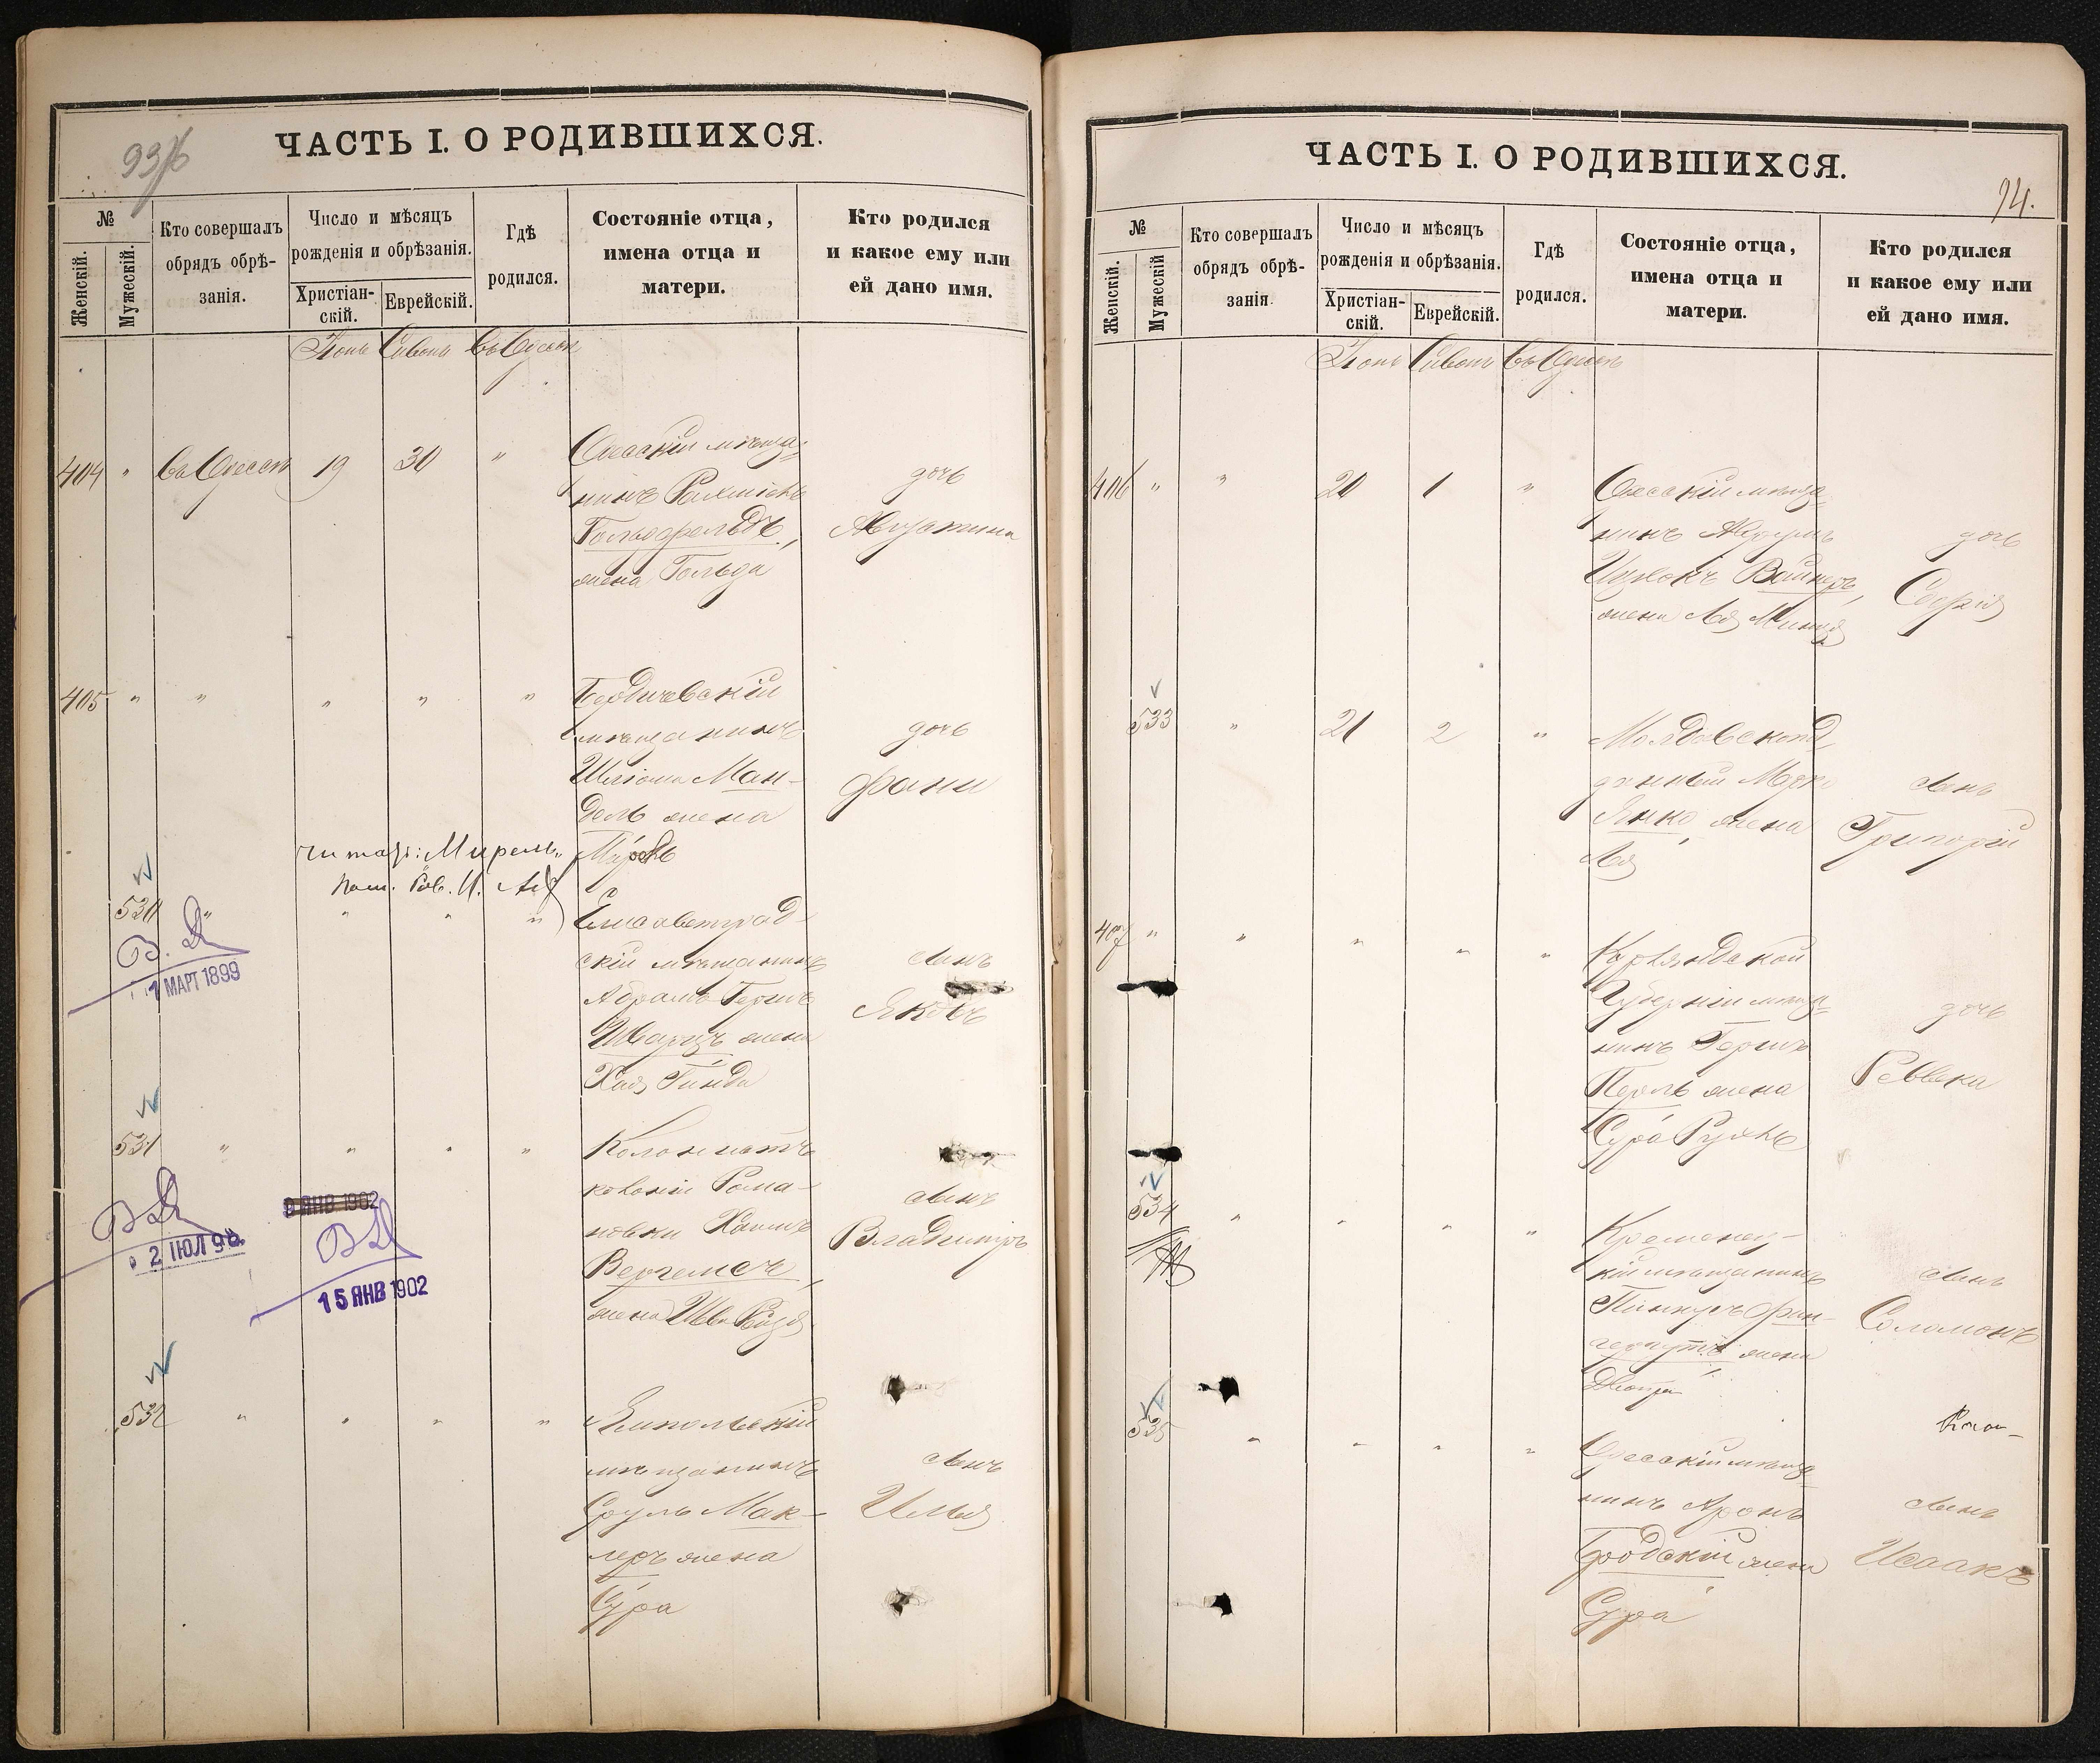 93/76
ЧАСТЬ I. О РОДИВШИХСЯ.
№
Женскій.
Мужескій.
Кто совершалъ
обрядъ обрѣ-
занія.
Число и мѣсяцъ
рожденія и обрѣзанія.
Христіан-
скій.
Еврейскій.
Гдѣ
родился.
Состояніе отца,
имена отца и
матери.
Кто родился
и какое ему или
ей дано имя.
Іюнь Сивонъ въ Одессѣ
404 " въ Одессѣ 19 30 "
Одесскій мѣща-
нинъ Рахміель
Гольдфельдъ,
жена Гольда
дочь
405 " " " " "
Бердичевскій
мѣщанинъ
Шліома Ман-
дель жена
дочь
Фани
читать: Мирель
530 " " " "
Елисаветград-
скій мѣщанинъ
Абрамъ Гершъ
Шварцъ жена
Хая Гинда
сынъ
Яковъ
В. Д
1 МАРТ 1899
531 " " " "
Колонистъ
колоніи Рома-
новки Хаимъ
жена
сынъ
Владиміръ
2 ІЮЛ 98.
9 ЯНВ 1902
15 ЯНВ 1902
532 " " " "
Ямпольскій
мѣщанинъ
Сруль Мак-
леръ жена
Сура
сынъ
Илья
ЧАСТЬ I. О РОДИВШИХСЯ.
94.
№
Женскій.
Мужескій
Кто совершалъ
обрядъ обрѣ-
занія.
Число и мѣсяцъ
рожденія и обрѣзанія.
Христіан-
скій.
Еврейскій.
Гдѣ
родился.
Состояніе отца,
имена отца и
матери.
Кто родился
и какое ему или
ей дано имя.
Іюнь Сивонъ въ Одессѣ
406 " " 20 1 "
Одесскій мѣща-
нинъ
Ицхокъ Вайнеръ,
жена Лея
дочь
Софія
533 " 21 2 "
Молдавскопод-
данный
Янко, жена
Лея
сынъ
Григорій
407 " " " " "
Курляндской
Губерніи мѣща-
нинъ Гершъ
Перль жена
Сура Рухль
дочь
Ревека
534 " " "
Кременец-
кій мѣщанинъ
Пинкусъ Фин-
жена
сынъ
Соломонъ
535 " " " "
Одесскій мѣща-
нинъ Аронъ
Бродскій жена
Сура
сынъ
Исаакъ